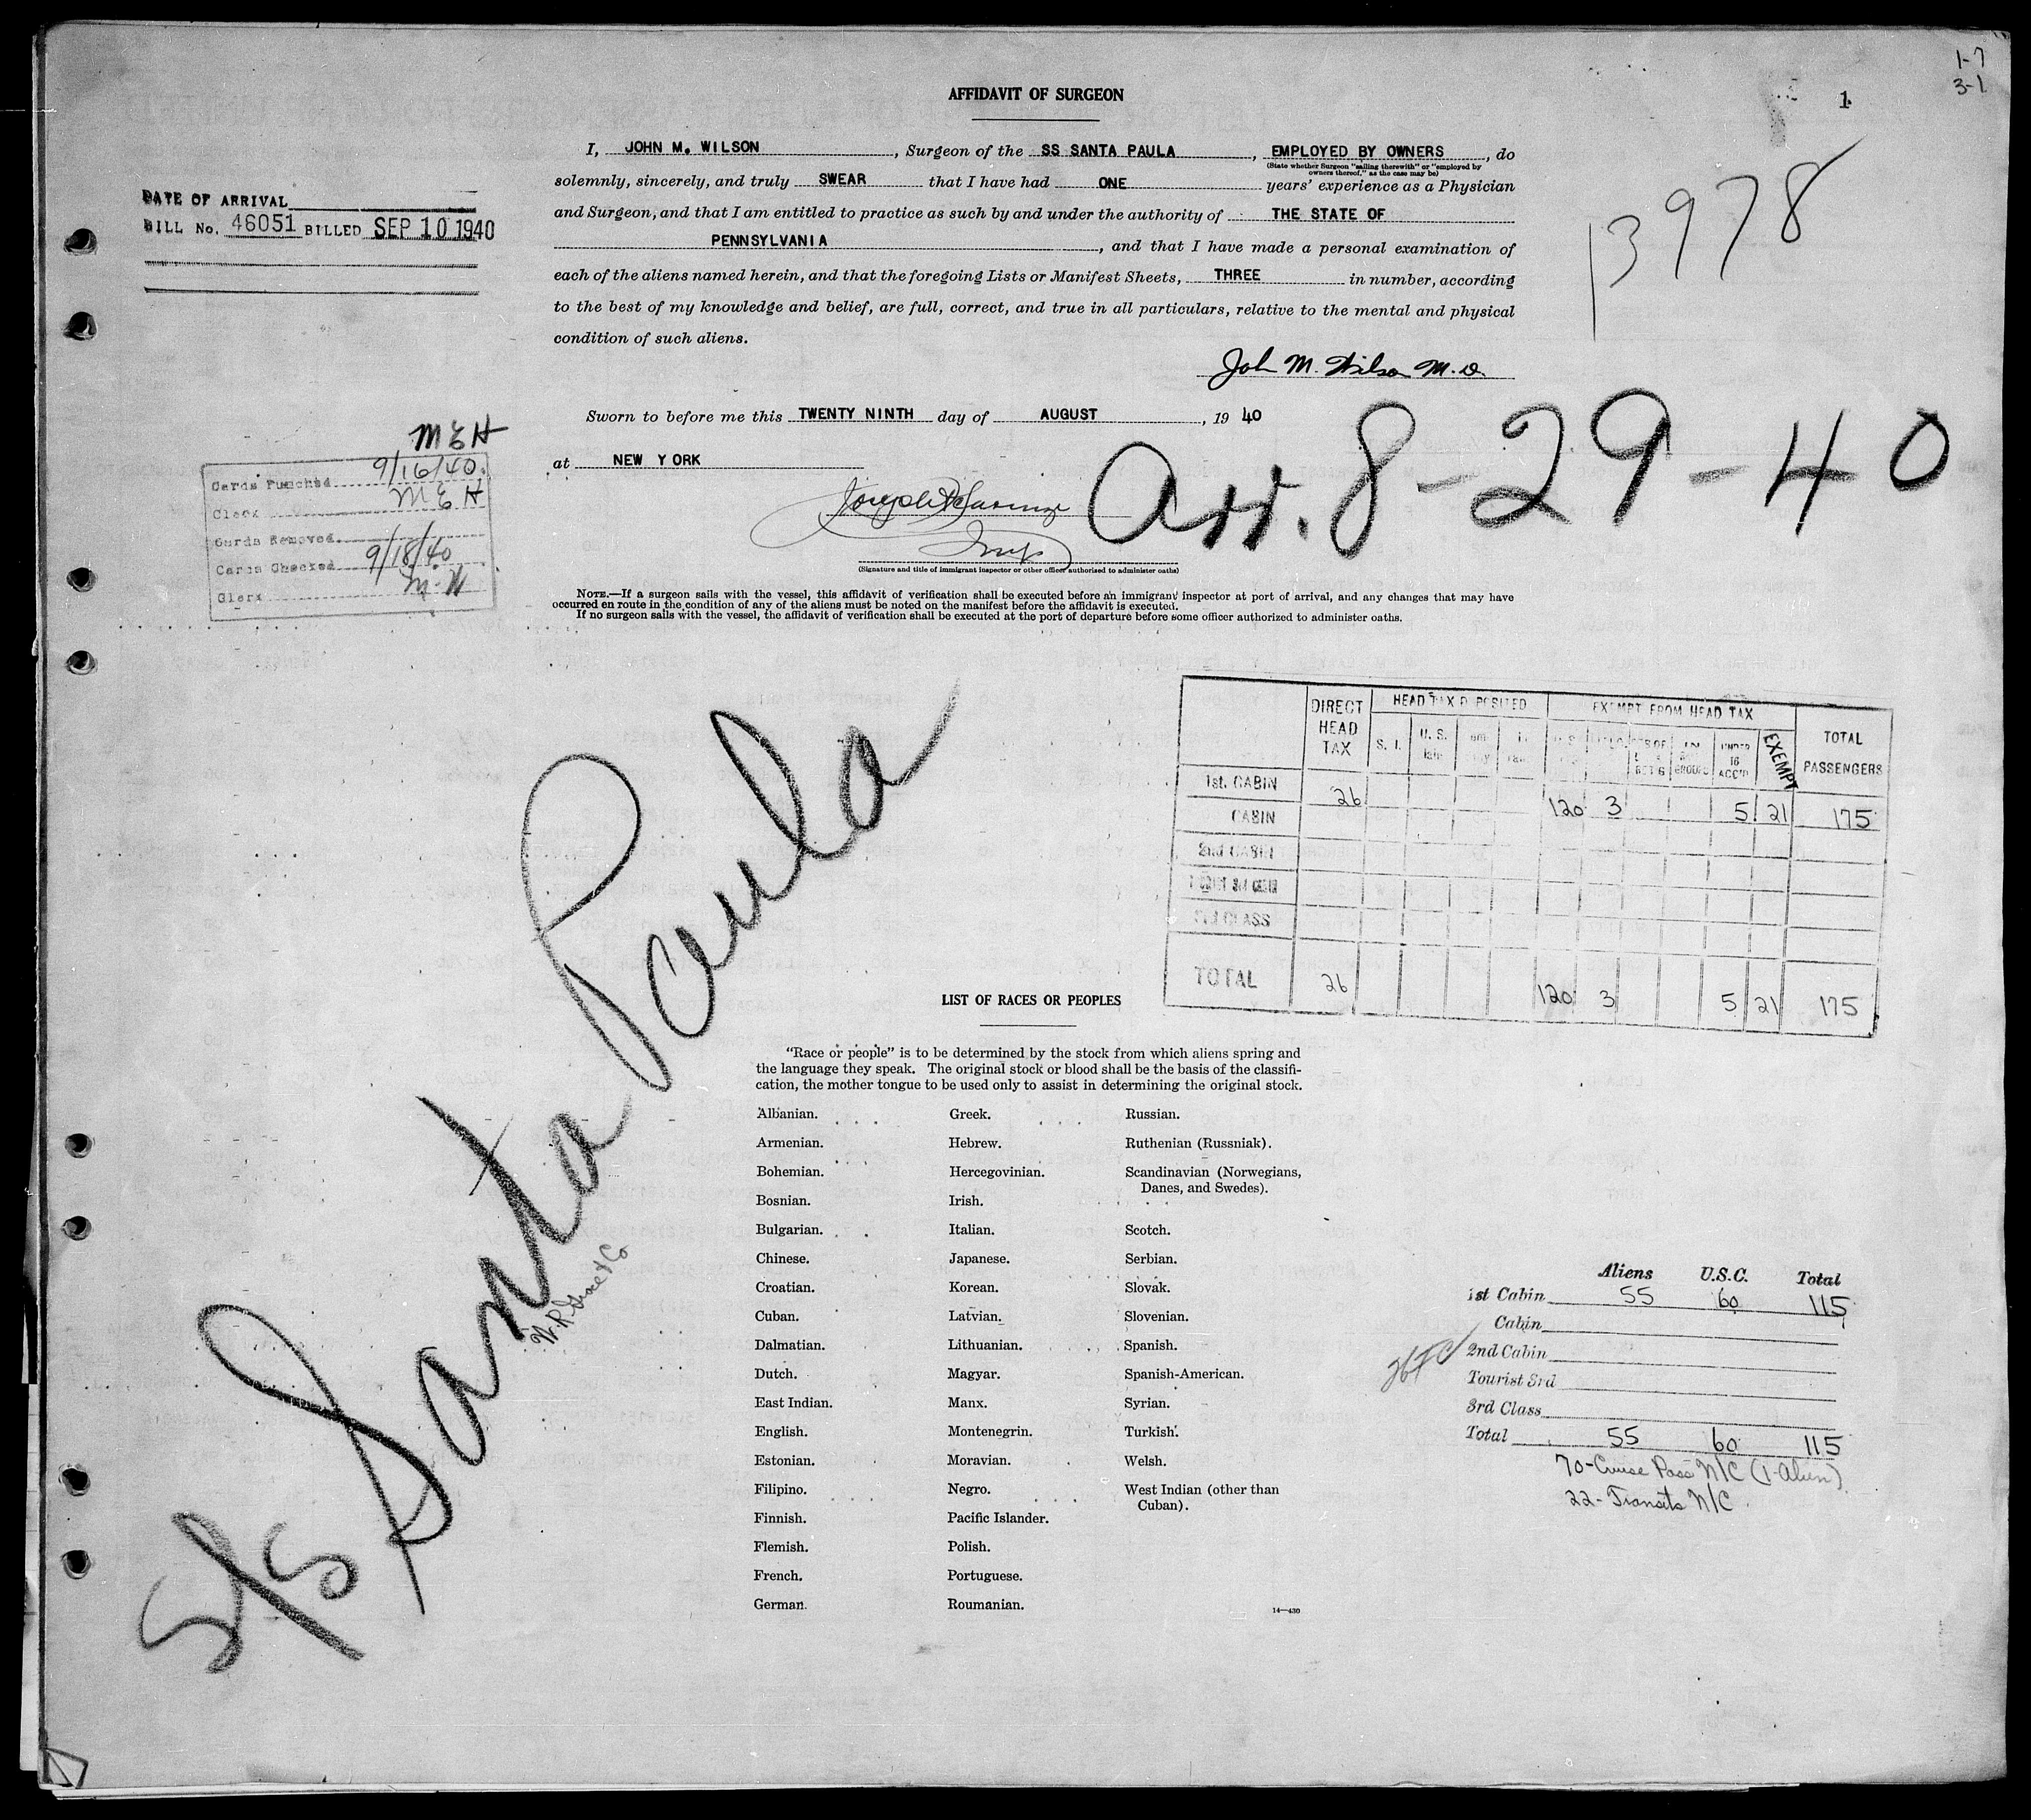 1-7
3-1
1
AFFIDAVIT OF SURGEON
I, JOHN M. WILSON, Surgeon of the SS SANTA PAULA, EMPLOYED BY OWNERS, do
(State whether Surgeon "sailing therewith" or "employed by
owners thereof," as the case may be)
solemnly, sincerely, and truly SWEAR that I have had ONE years' experience as a Physician
and Surgeon, and that I am entitled to practice as such by and under the authority of THE STATE OF
PENNSYLVANIA, and that I have made a personal examination of
each of the aliens named herein, and that the foregoing Lists or Manifest Sheets, THREE in number, according
to the best of my knowledge and belief, are full, correct, and true in all particulars, relative to the mental and physical
condition of such aliens.
John M. Wilson M.D.
Sworn to before me this TWENTY NINTH day of AUGUST, 19 40
at NEW YORK
(Signature and title of immigrant inspector or other officer authorized to administer oaths)
NOTE.—If a surgeon sails with the vessel, this affidavit of verification shall be executed before an immigrant inspector at port of arrival, and any changes that may have
occurred en route in the condition of any of the aliens must be noted on the manifest before the affidavit is executed.
If no surgeon sails with the vessel, the affidavit of verification shall be executed at the port of departure before some officer authorized to administer oaths.
DATE OF ARRIVAL
BILL No. 46051 BILLED SEP 10 1940
13978
Arr. 8-29-40
MEH
Cards Punched 9/16/40.
Clerk MEH
Cards Removed
Cards Checked 9/18/40
Clerk M-W
S/S Santa Paula
W.R. Grace & Co
DIRECT HEAD TAX HEAD TAX DEPOSITED EXEMPT FROM HEAD TAX TOTAL PASSENGERS
S. I. U. S. UNDER 16 ACC'P EXEMPT
1st. CABIN 26 120 3 5 21 175
CABIN
2nd CABIN
3rd CLASS
TOTAL 26 120 3 5 21 175
LIST OF RACES OR PEOPLES
"Race or people" is to be determined by the stock from which aliens spring and
the language they speak. The original stock or blood shall be the basis of the classifi-
cation, the mother tongue to be used only to assist in determining the original stock.
Albanian.
Armenian.
Bohemian.
Bosnian.
Bulgarian.
Chinese.
Croatian.
Cuban.
Dalmatian.
Dutch.
East Indian.
English.
Estonian.
Filipino.
Finnish.
Flemish.
French.
German.
Greek.
Hebrew.
Hercegovinian.
Irish.
Italian.
Japanese.
Korean.
Latvian.
Lithuanian.
Magyar.
Manx.
Montenegrin.
Moravian.
Negro.
Pacific Islander.
Polish.
Portuguese.
Roumanian.
Russian.
Ruthenian (Russniak).
Scandinavian (Norwegians,
Danes, and Swedes).
Scotch.
Serbian.
Slovak.
Slovenian.
Spanish.
Spanish-American.
Syrian.
Turkish.
Welsh.
West Indian (other than
Cuban).
14—430
Aliens U.S.C. Total
1st Cabin 55 60 115
Cabin
2nd Cabin
Tourist 3rd
3rd Class
Total 55 60 115
70-Cruise Pass N/C (1-Alien)
22-Transits N/C